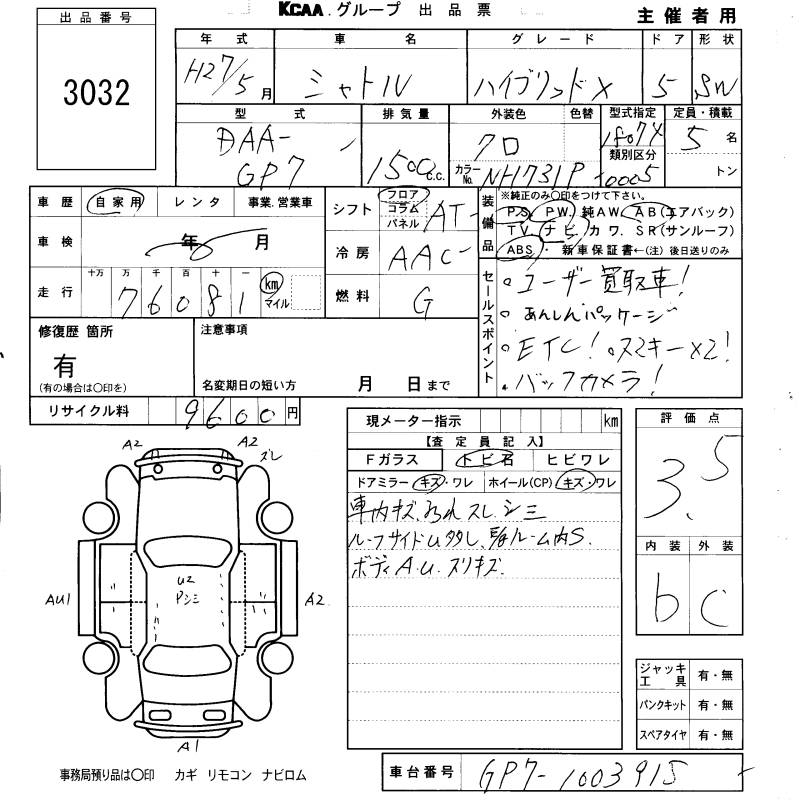 KCAA.グループ 出品票
主催者用
出品番号
3032
年式 車名 グレード ドア 形状
H27/5月 シャトル ハイブリッドX 5 SW
型式 排気量 外装色 色替 型式指定 定員・積載
DAA-GP7 1500c.c. クロ 18074 5名
カラーNo. NH731P 類別区分 0005 トン
車歴 自家用 レンタ 事業.営業車
シフト フロア コラム パネル AT
装備品 ※純正のみ〇印をつけて下さい。
P.S. P.W. 純AW. AB(エアバック)
TV. ナビ. カワ. SR(サンルーフ)
ABS・新車保証書←(注) 後日送りのみ
車検 年 月
冷房 AAC
走行 十万 万 千 百 十 一
76081 km マイル
燃料 G
セールスポイント
○ユーザー買取車!
○あんしんパッケージ
○ETC! ○スマキー×2!
・バックカメラ!
修復歴 箇所
有
(有の場合は〇印を)
注意事項
名変期日の短い方 月 日まで
リサイクル料 9600円
現メーター指示 km
【査定員記入】
Fガラス トビ石 ヒビワレ
ドアミラー キズ・ワレ ホイール(CP) キズ・ワレ
車内キズ、スレ、シミ
ルーフサイドU多し、ルーム内S.
ボディA.U.スリキズ.
評価点
3.5
内装 外装
b c
A2 A2
ズレ
U2
Pシミ
AU1
A2
A1
ジャッキ工具 有・無
パンクキット 有・無
スペアタイヤ 有・無
事務局預り品は〇印 カギ リモコン ナビロム
車台番号 GP7-1003915